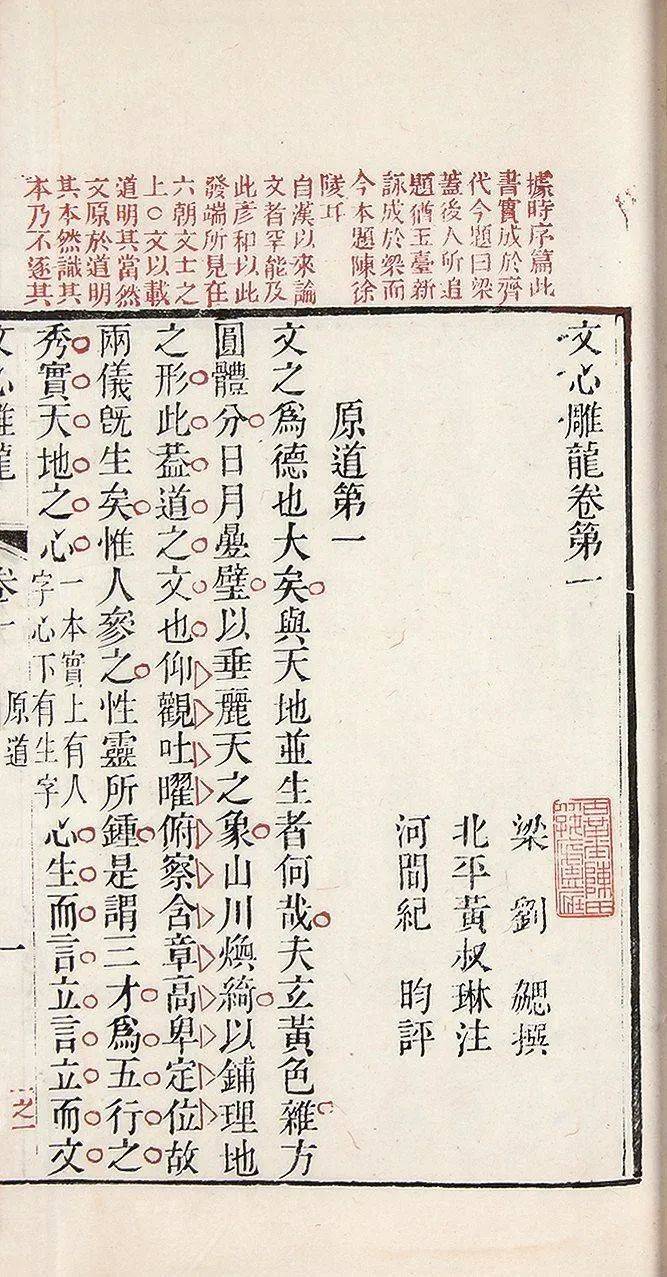 據時序篇此
書實成於齊
代今題曰梁
蓋後人所追
題猶玉臺新
詠成於梁而
今本題陳徐
陵耳
自漢以來論
文者罕能及
此彥和以此
發端所見在
六朝文士之
上○文以載
道明其當然
文原於道明
其本然識其
本乃不逐其
文心雕龍卷第一
梁劉勰撰
北平黃叔琳注
河間紀昀評
原道第一
文之爲德也大矣與天地並生者何哉夫玄黃色雜方
圓體分日月疊璧以垂麗天之象山川煥綺以鋪理地
之形此葢道之文也仰觀吐曜俯察含章高卑定位故
兩儀旣生矣惟人參之性靈所鍾是謂三才爲五行之
秀實天地之心一本實上有人字心下有生字心生而言立言立而文
文心雕龍
卷一
原道
一
之一